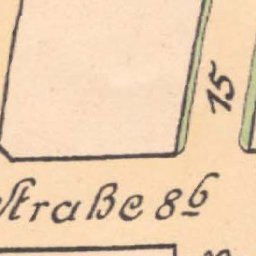 15
Straße 8b